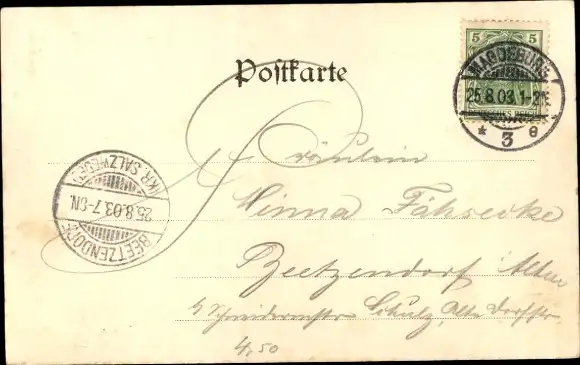 Postkarte
5 5
MAGDEBURG
25.8.03.1-2N.
* 3 e
DEUTSCHES REICH
KR. SALZWEDEL
25.8.03.7-8N.
BEETZENDORF
Fräulein
Minna
Beetzendorf Altm
b Schneidermstr Schulz, Alte Dorfstr.
4,50